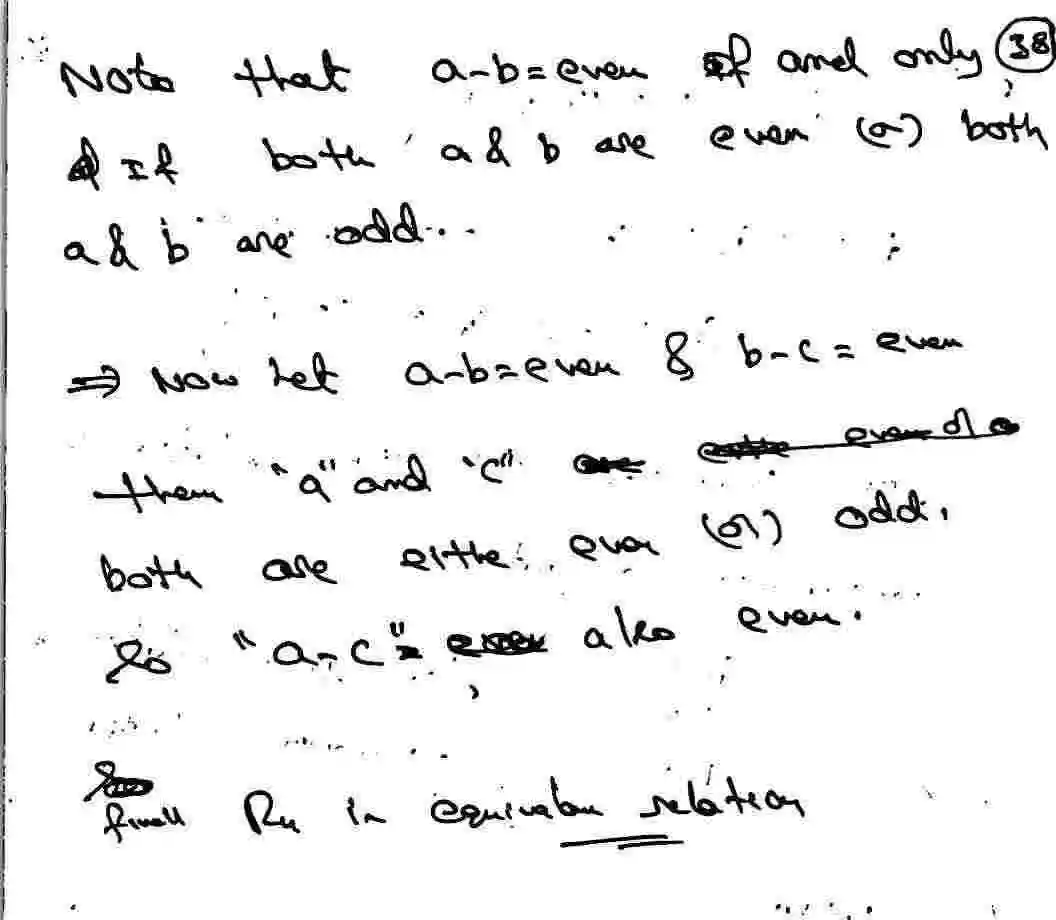 Note that a-b=even if and only (38)
If both a & b are even (or) both
a & b are odd...
⇒ Now Let a-b=even & b-c = even
then "a" and "c"
both are eithe even (or) odd.
So "a-c" also even.
finall R4 in equivalen relation